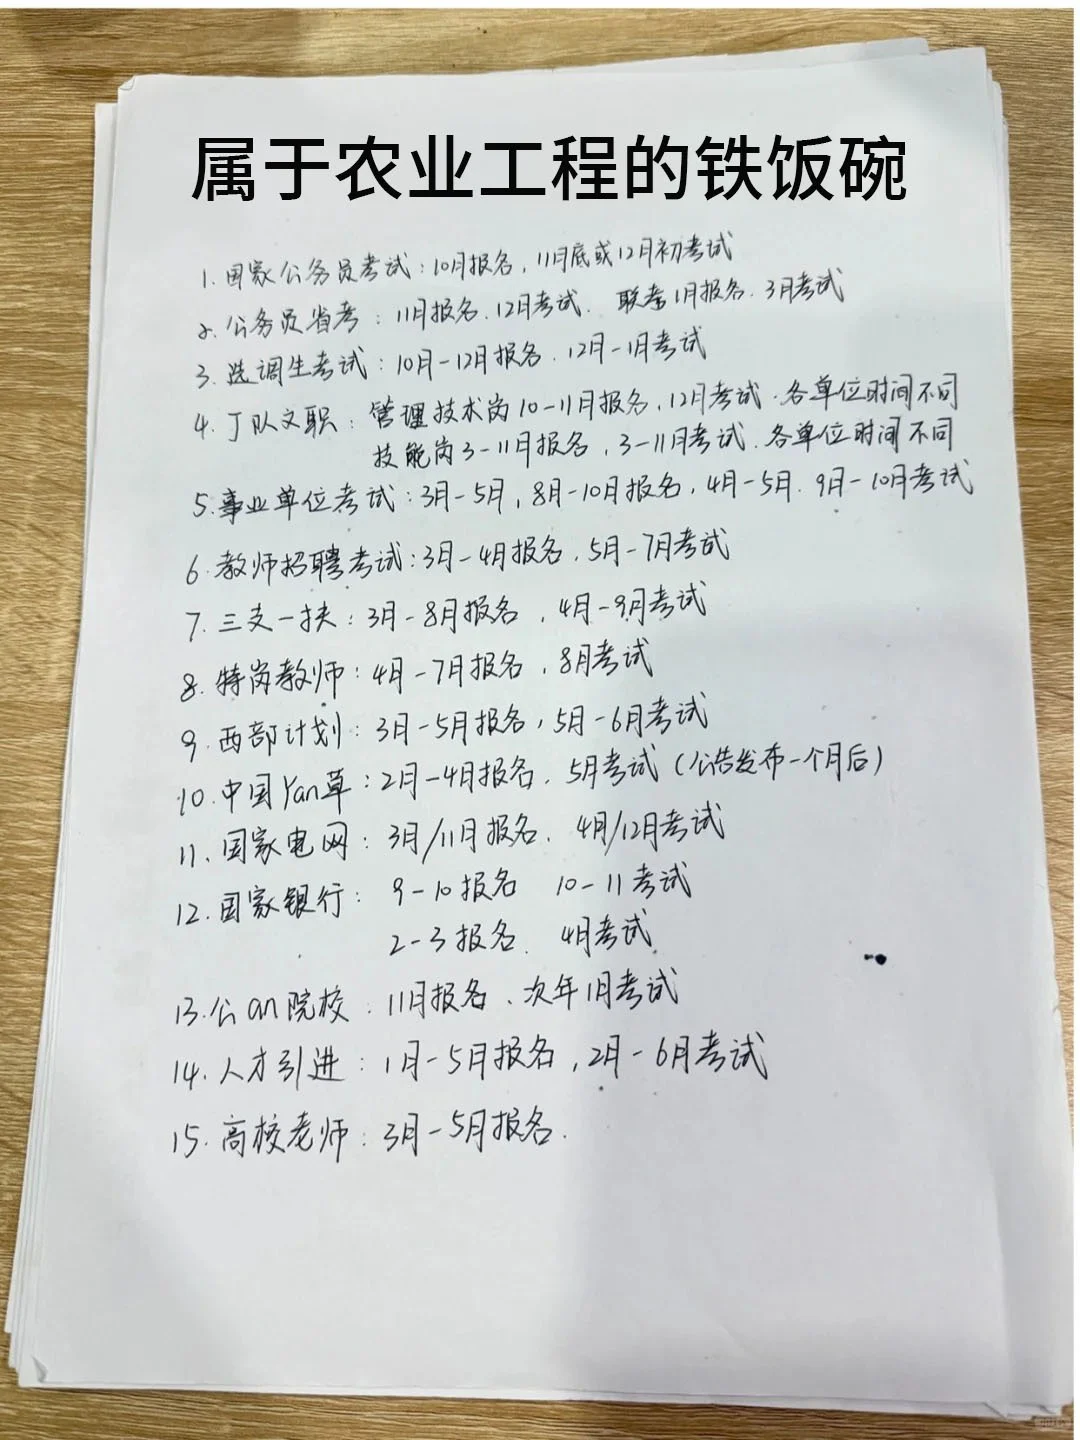 属于农业工程的铁饭碗
1. 国家公务员考试：10月报名，11月底或12月初考试
2. 公务员省考：11月报名、12月考试、联考1月报名、3月考试
3. 选调生考试：10月-12月报名、12月-1月考试
4. 丁队文职：管理技术岗10-11月报名，12月考试、各单位时间不同
技能岗3-11月报名，3-11月考试、各单位时间不同
5. 事业单位考试：3月-5月，8月-10月报名，4月-5月、9月-10月考试
6. 教师招聘考试：3月-4月报名、5月-7月考试
7. 三支一扶：3月-8月报名，4月-9月考试
8. 特岗教师：4月-7月报名，8月考试
9. 西部计划：3月-5月报名，5月-6月考试
10. 中国Yan草：2月-4月报名、5月考试（公告发布一个月后）
11、国家电网：3月/11月报名、4月/12月考试
12. 国家银行：9-10报名 10-11考试
2-3报名、4月考试
13. 公an院校：11月报名、次年1月考试
14. 人才引进：1月-5月报名，2月-6月考试
15. 高校老师：3月-5月报名.